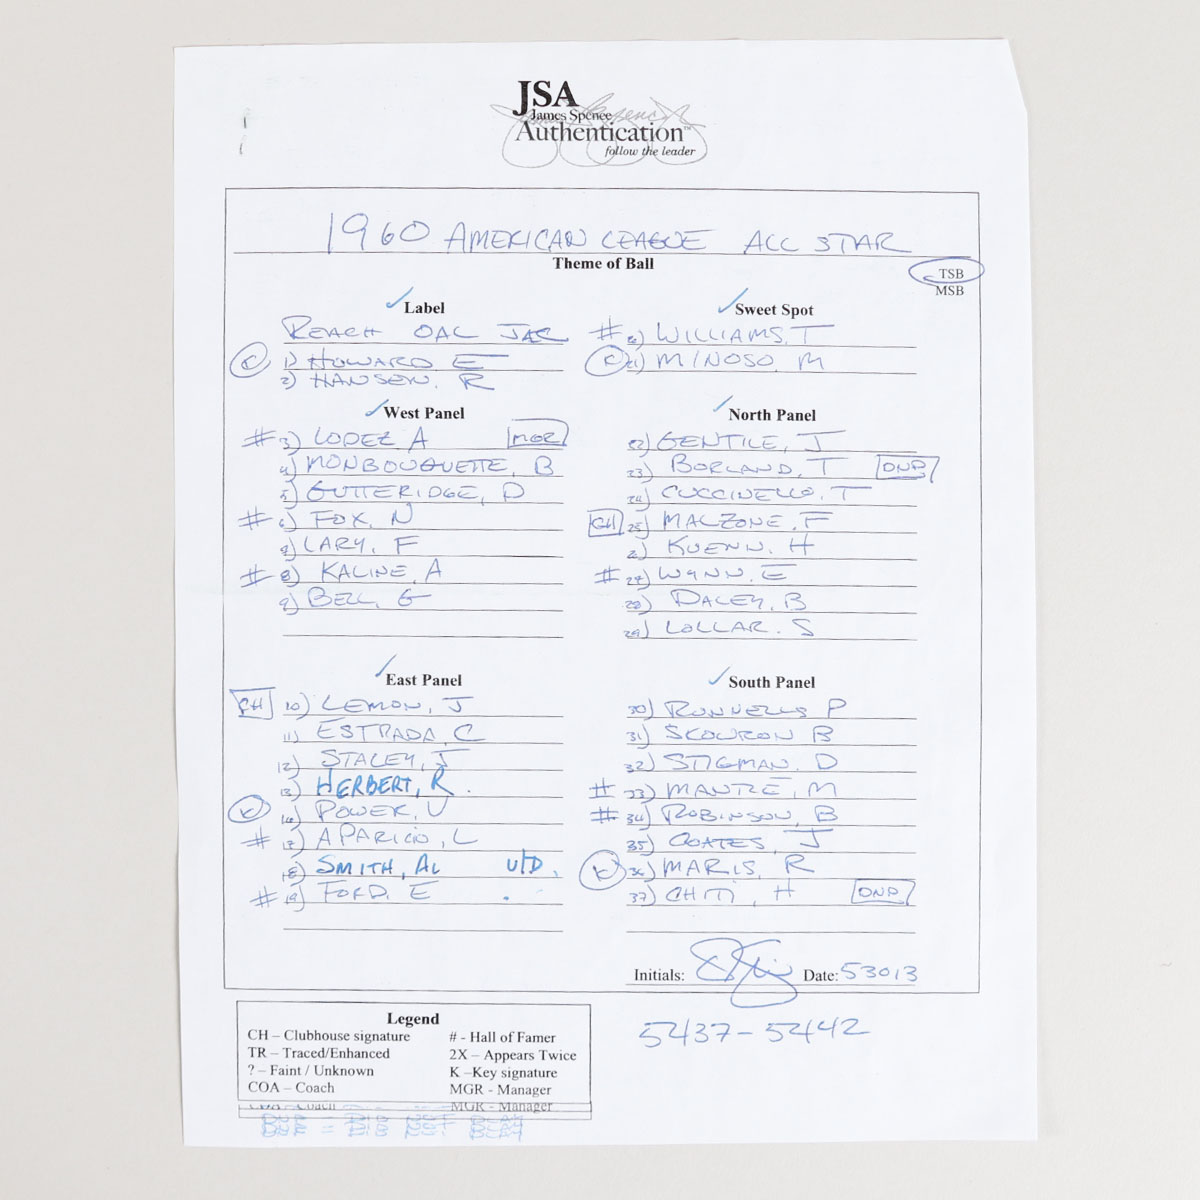 JSA
James Spence
Authentication™
follow the leader
1960 AMERICAN LEAGUE ALL STAR
Theme of Ball
TSB
MSB
✓ Label
REACH OAL JAC
K 1) HOWARD E
2) HANSEN, R
✓ Sweet Spot
# 20) WILLIAMS, T
K 21) MINOSO, M
✓ West Panel
# 3) LOPEZ A MGR
4) MONBOUQUETTE, B
5) GUTTERIDGE, D
# 6) FOX, N
7) LARY, F
# 8) KALINE, A
9) BELL, G
✓ North Panel
22) GENTILE, J
23) BORLAND, T DNP
24) CUCCINELLO, T
CH 25) MALZONE, F
26) KUENN, H
# 27) WYNN, E
28) DALEY, B
29) LOLLAR, S
✓ East Panel
CH 10) LEMON, J
11) ESTRADA, C
12) STALEY, J
13) HERBERT, R.
K 16) POWER, V
# 17) APARICIO, L
18) SMITH, AL U/D.
# 19) FORD, E .
✓ South Panel
30) RUNNELLS P
31) SKOWRON B
32) STIGMAN, D
# 33) MANTLE, M
# 34) ROBINSON, B
35) COATES, J
K 36) MARIS, R
37) CHITI, H DNP
Initials: Date: 53013
5437-5442
Legend
CH – Clubhouse signature
TR – Traced/Enhanced
? – Faint / Unknown
COA – Coach
# - Hall of Famer
2X – Appears Twice
K –Key signature
MGR - Manager
MGR - Manager
DNP = DID NOT PLAY